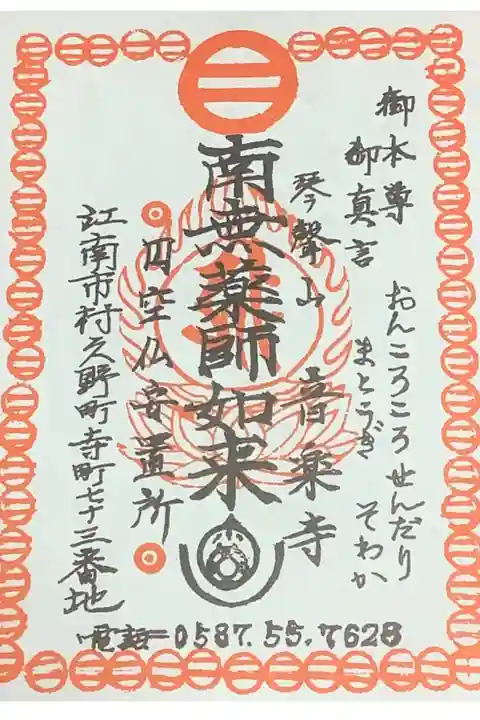 御本尊
御真言
おんころころせんだり
まとうぎ
そわか
琴聲山
音楽寺
南無薬師如来
円空仏安置所
江南市村久野町寺町七十三番地
電話=0587.55.7628